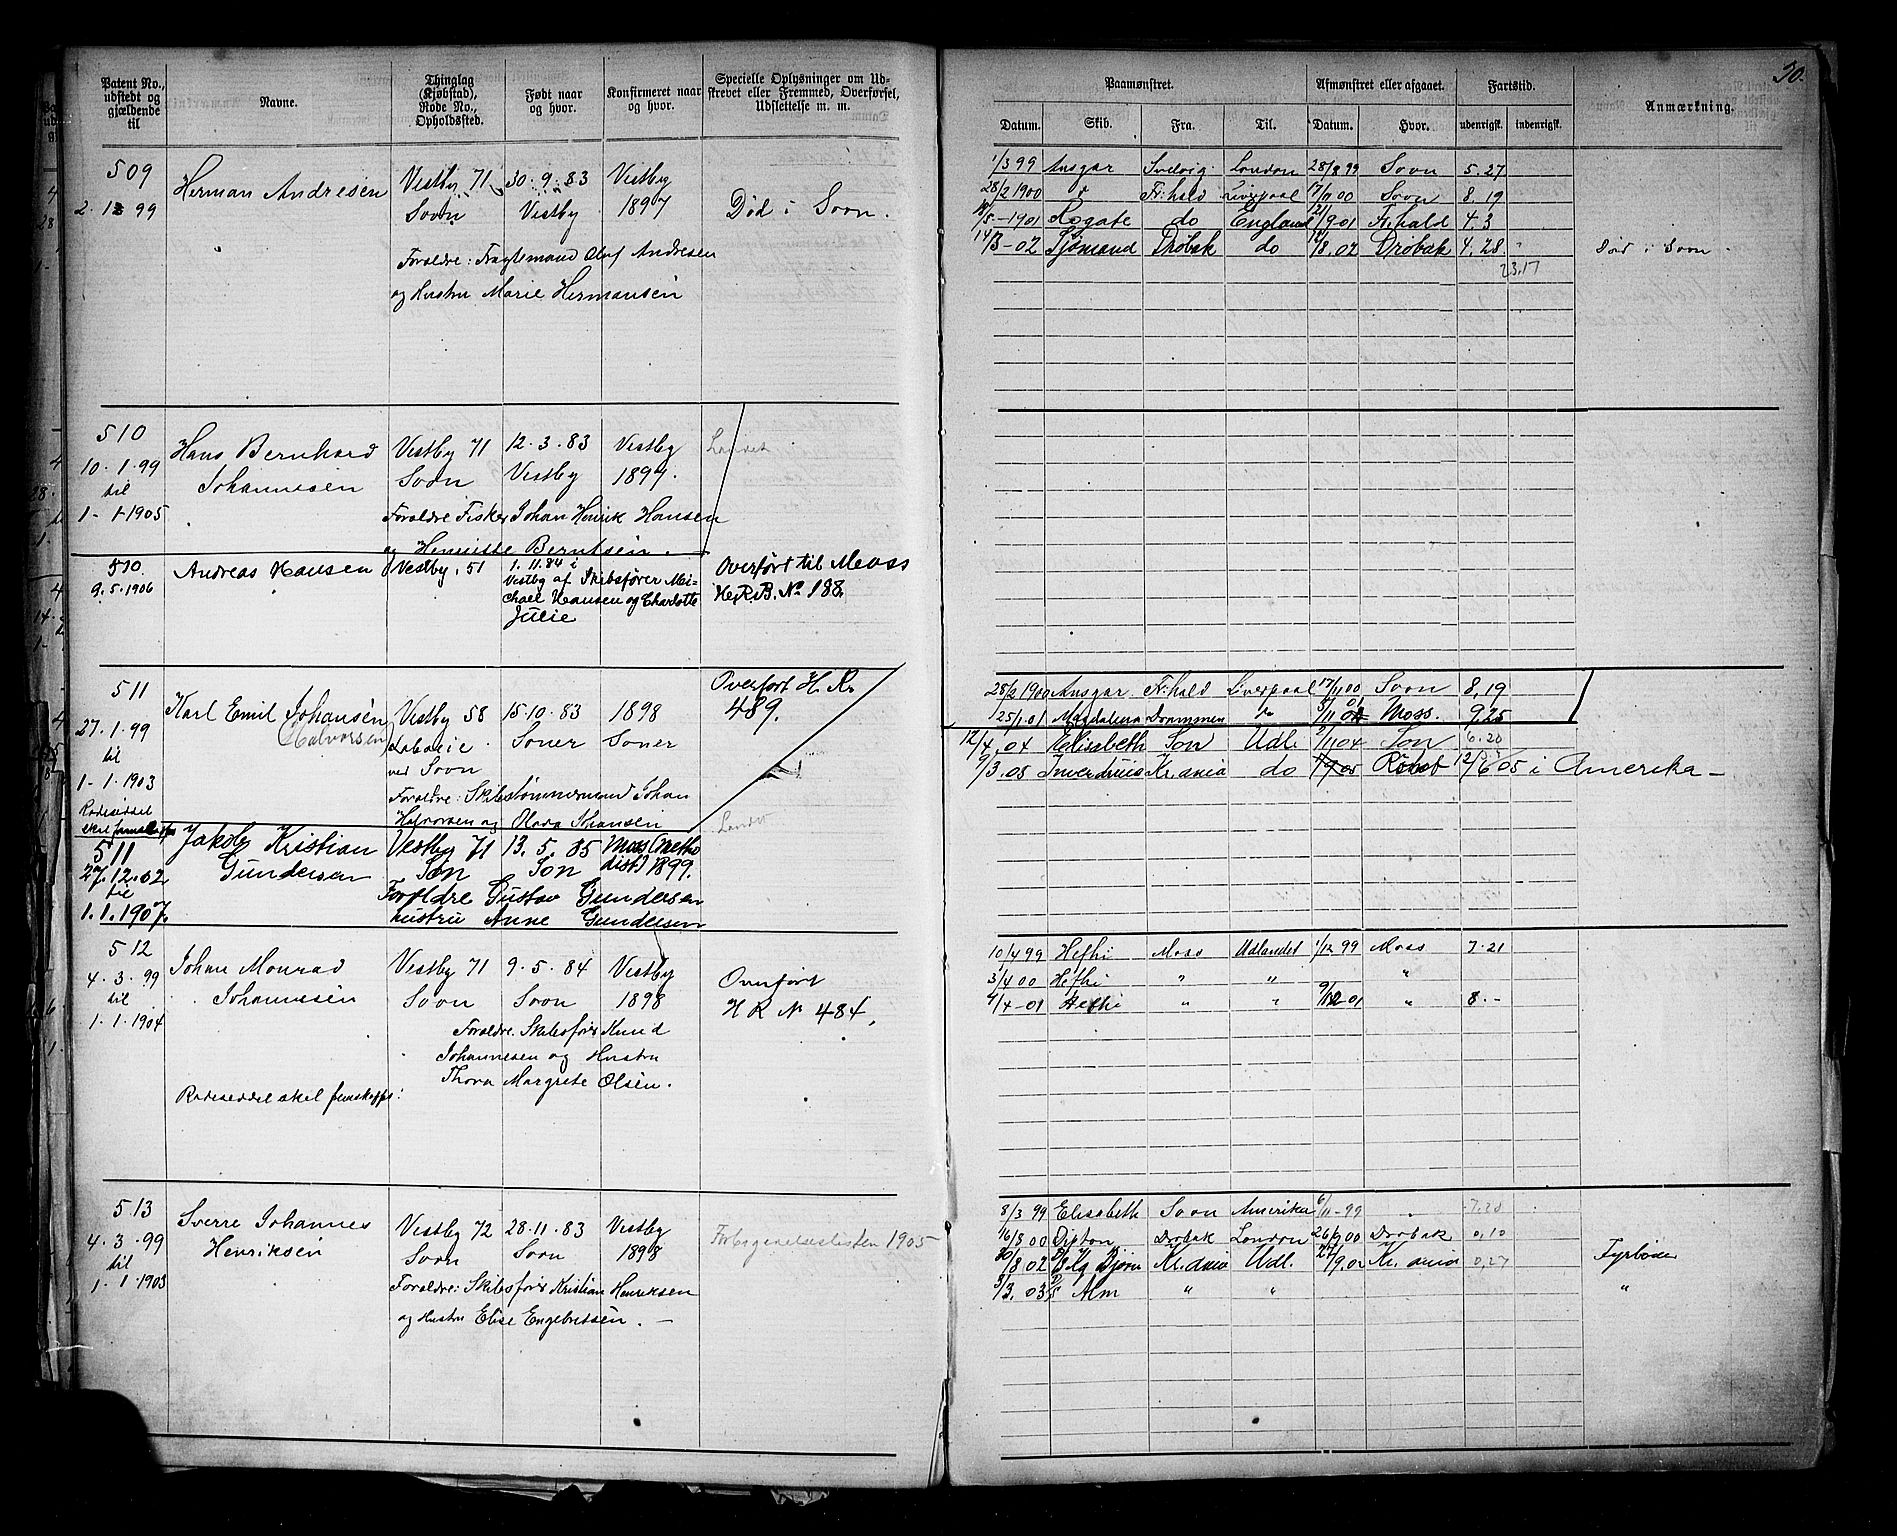 Patent No., udstedt og gjældende til
Navne.
Thinglag (Kjøbstad), Rode No., Opholdssted.
Født naar og hvor.
Konfirmeret naar og hvor.
Specielle Oplysninger om Udskrevet eller Fremmed, Overførsel, Udslettelse m. m.
509
2. 1 99
Herman Andresen
Vestby 71
Sovn
30.9.83
Vestby
Vestby
1897
Død i Sovn.
Forældre: Fragtemand Oluf Andresen
og Hustru Marie Hermansen
510
10.1.99
til
1-1-1905
Hans Bernhard
Johannesen
Vestby 71
Sovn
12.3.83
Vestby
Vestby
1897.
Landet
Forældre Fisker Johan Henrik Hansen
og Henriette Berntsen.
510.
9.5.1906
Andreas Hansen
Vestby. 51
1.11.84 i
Vestby af Skibsfører Mi-
chael Hansen og Charlotte
Julie
Overført til Moss
H.R.B. No 188.
511
27.1.99
til
1-1.1903
Karl Emil Johansen
(Halvorsen
Vestby 58
Labo
ved Sovn
15.10.83
Soner
1898
Soner
Overført H. R.
489.
Forældre: Skibstømmermand Johan
Halvorsen og Johansen
511
27.12.02
til
1.1.1907.
Jakob Kristian
Gundersen
Vestby 71
Søn
13.5.85
Son
Moss (Metho
dist) 1899.
Landet
Forældre Gustav Gundersen
hustru Anne Gundersen
512
4.3.99
til
1.1.1904
Johan Monrad
Johannesen
Vestby 71
Sovn
9.5.84
Sovn
Vestby
1898
Overført
H R No 484.
Forældre: Skibsfører Knud
Johannesen og Hustru
Thora Margrete Olsen.
Rodeseddel skal fremskaffes!
513
4.3.99
til
1.1.1903
Sverre Johannes
Henriksen
Vestby 72
Sovn
28.11.83
Sovn
Vestby
1898
Forbigaaelseslisten 1905
Forældre: Skibsfører Kristian Henriksen
og Hustru Elise Engebretsen. —
30.
Paamønstret.
Afmønstret eller afgaaet.
Fartstid.
Anmærkning.
Datum. Skib. Fra. Til. Datum. Hvor. udenrigsk. indenrigsk.
1/3 99 Ansgar Svelvig London 28/8 99 Sovn 5.27
28/2 1900 " Fr.hald Liverpool 17/11 00 Sovn 8.19
-1901 Rogate do England 21/9 01 Fr.hald 4.3
14/3-02 Sjømand Drøbak do /8.02 Drøbak 4.28 Død i Sovn
23.17
28/2 1900 Ansgar Fr.hald Liverpool 17/11 00 Sovn 8,19
25/1.01 Magdalena Drammen do Moss. 9.25
12/4.04 Elisabeth Son Udl. 2/11 04 Son 6.20
9/3.05 Kr.ania do 12/6 05 i Amerika —
10/4 99 Hethi Moss Udlandet 1/12 99 Moss 7.21
3/4 00 Hethi " " "
4/4-01 Hethi " " 9/12 01 " 8.-
8/3 99 Elisabeth Sovn Amerika 6/11-99 " 7.28
16/8 00 Dipton Drøbak London 26/9 00 Drøbak 0,10
30/8.02 Bjørn Kr.ania Udl. 27/9.02 Kr.ania 0,27 Fyrbøder
3/3.03 Alm " " "